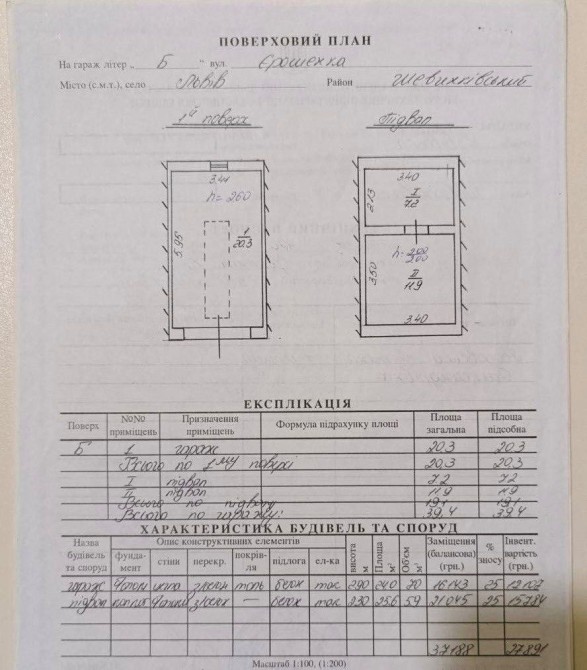 ПОВЕРХОВИЙ ПЛАН
На гараж літер „ Б " вул Єрошенка
Місто (с.м.т.), село Львів Район Шевченківський
1й поверх
Підвал
3.41
h=260
5.95
1
20.3
3.40
2.13
I
7.2
h=200
200
3.50
II
11.9
3.40
ЕКСПЛІКАЦІЯ
Поверх №№ приміщень Призначення приміщень Формула підрахунку площі Площа загальна Площа підсобна
Б 1 гараж 20,3 20,3
Всього по 1му поверсі 20,3 20,3
I підвал 7.2 7.2
II підвал 11.9 11.9
Всього по підвалу 19.1 19.1
Всього по гаражу: 39.4 39.4
ХАРАКТЕРИСТИКА БУДІВЕЛЬ ТА СПОРУД
Назва будівель та споруд Опис конструктивних елементів висота м Площа м² Об'єм м³ Заміщення (балансова) (грн.) % зносу Інвент. вартість (грн.)
фунда-мент стіни перекр. покрів-ля підлога ел-ка
гараж бетон толь бетон так 290 24.0 70 16143 25 12107
підвал — бетон так 230 25.6 59 21045 25 15784
37188 27891
Масштаб 1:100, (1:200)